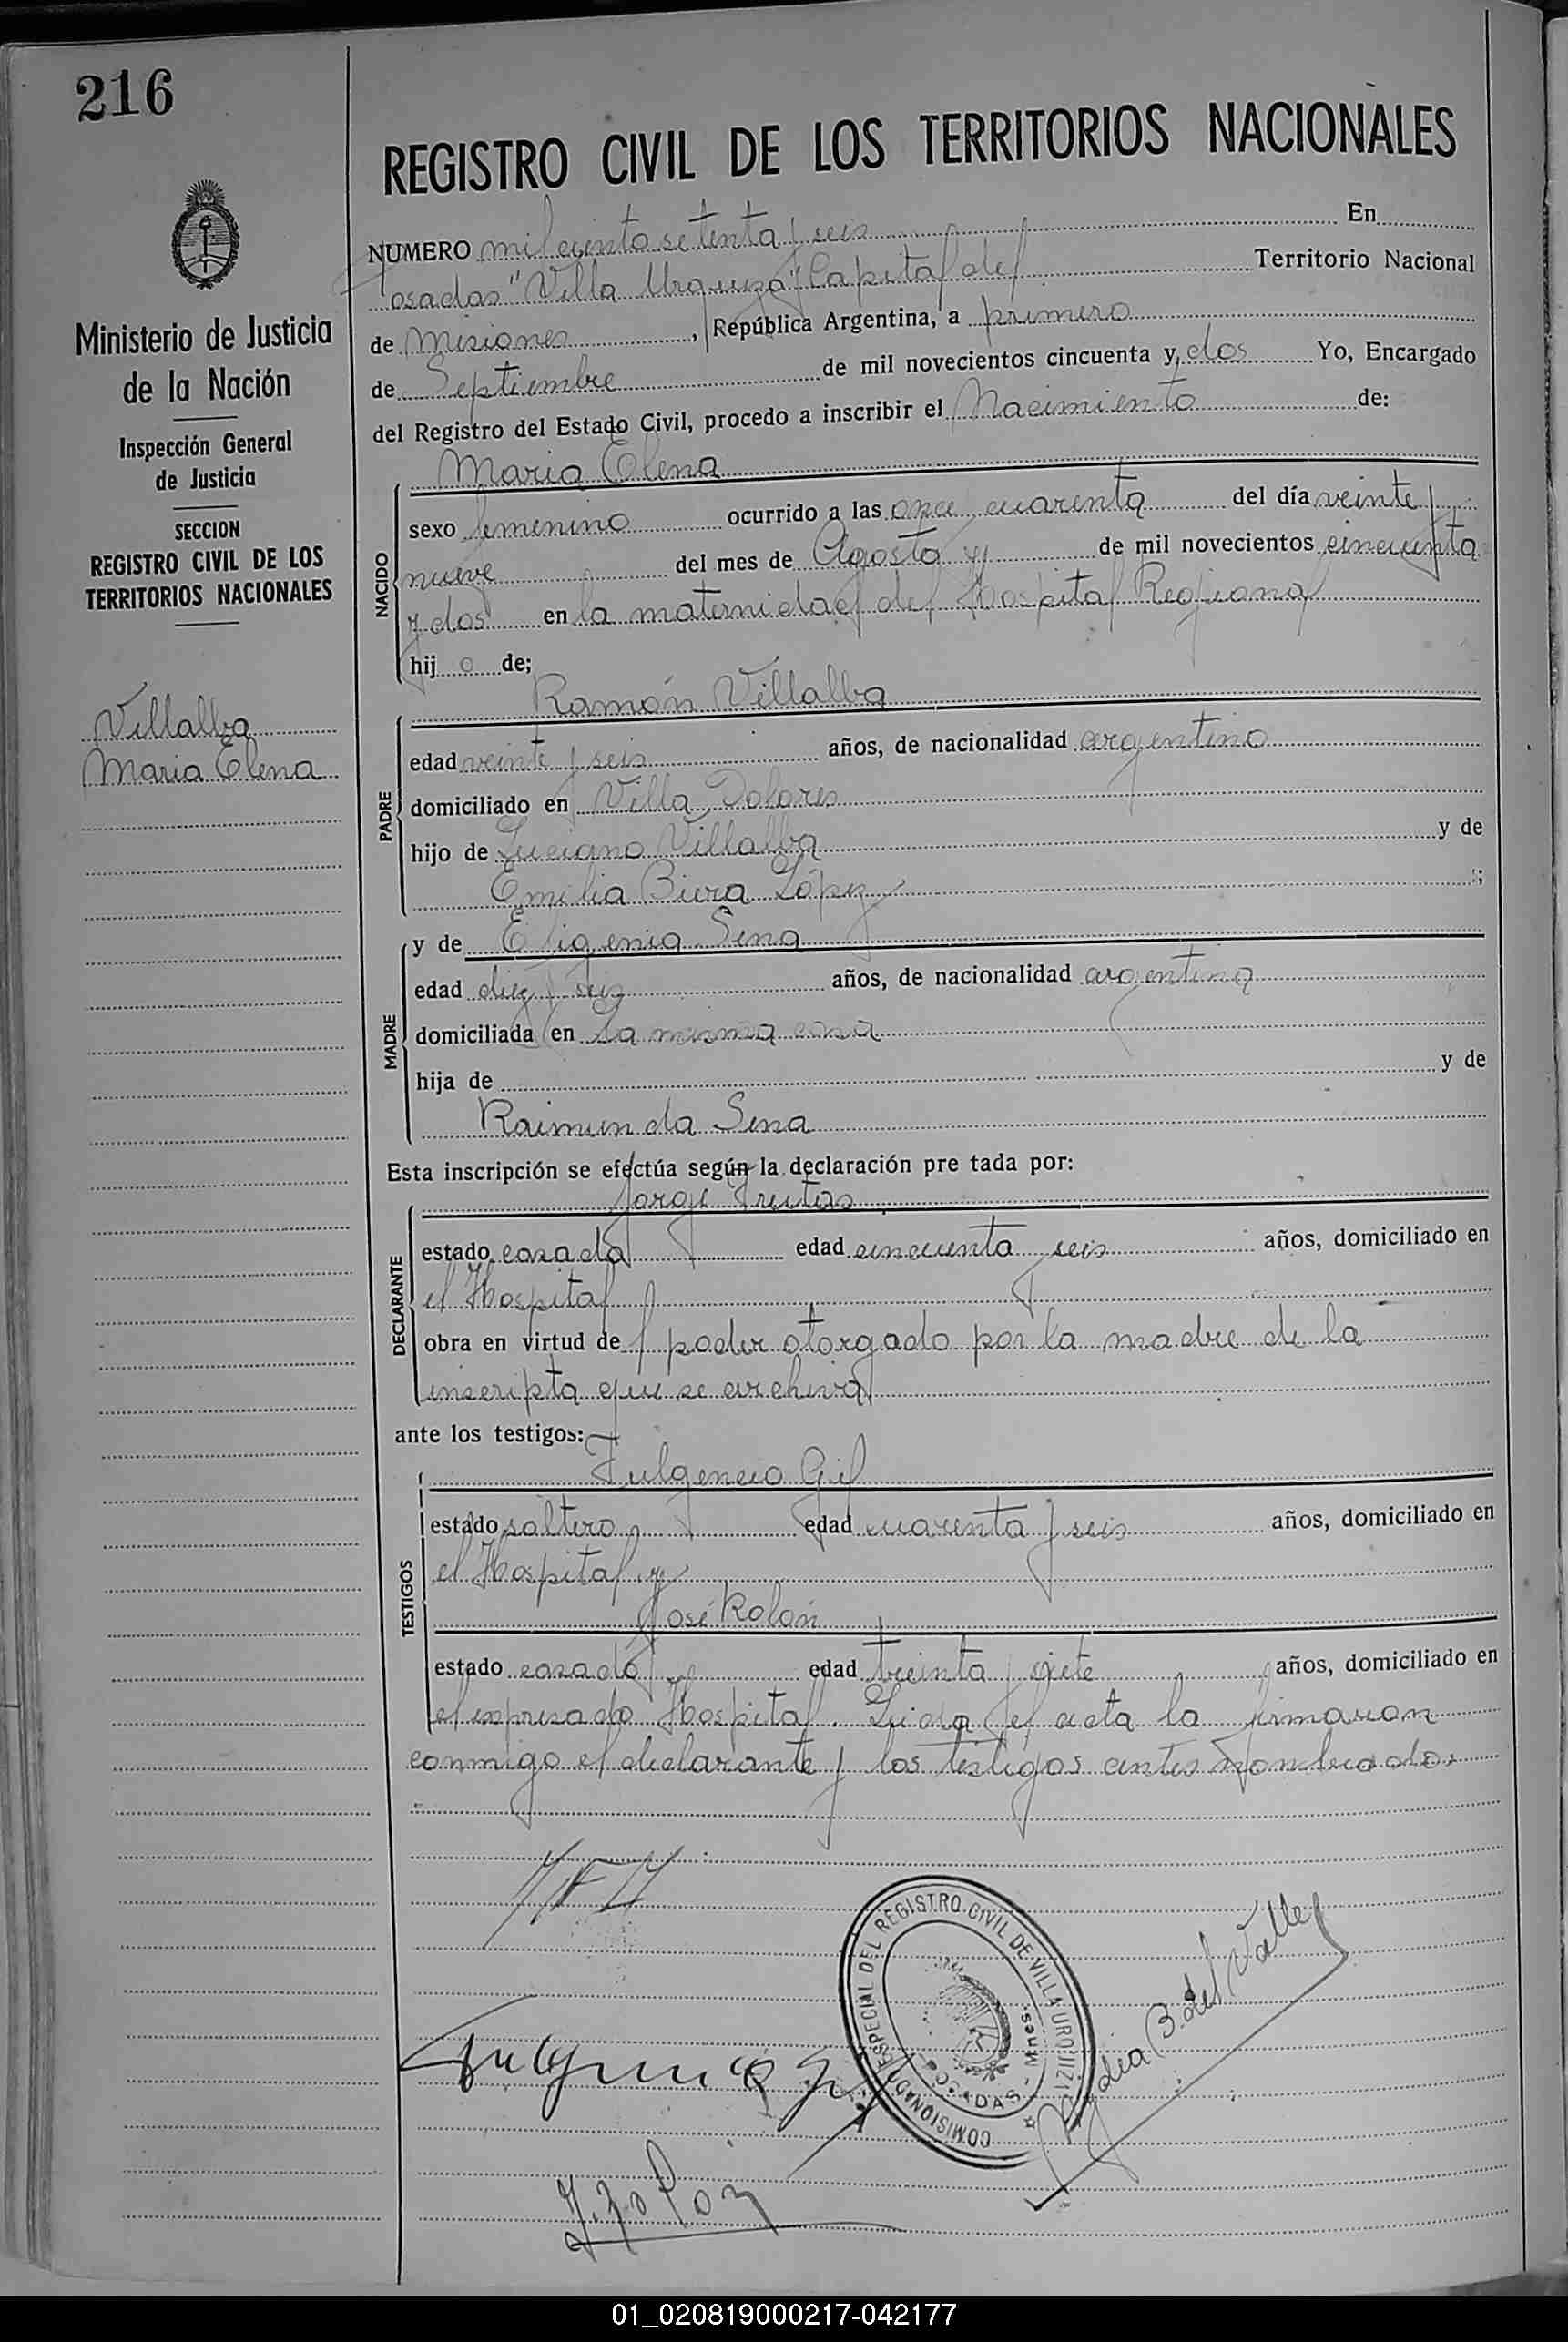 216
REGISTRO CIVIL DE LOS TERRITORIOS NACIONALES
NUMERO mil ciento setenta y seis En
Posadas "Villa Urquiza" Capital del Territorio Nacional
de Misiones, República Argentina, a primero
de Septiembre de mil novecientos cincuenta y dos Yo, Encargado
del Registro del Estado Civil, procedo a inscribir el Nacimiento de:
Ministerio de Justicia
de la Nación
Inspección General
de Justicia
SECCION
REGISTRO CIVIL DE LOS
TERRITORIOS NACIONALES
Villalba
Maria Elena
NACIDO
Maria Elena
sexo femenino ocurrido a las once cuarenta del día veinte y
nueve del mes de Agosto y de mil novecientos cincuenta
y dos en la maternidad del Hospital Regional
hij a de;
PADRE
Ramón Villalba
edad veinte y seis años, de nacionalidad argentino
domiciliado en Villa Dolores
hijo de Luciano Villalba y de
Emilia Biera López ;
MADRE
y de Efigenia Sena
edad diez y seis años, de nacionalidad argentina
domiciliada en La misma casa
hija de y de
Raimunda Sena
Esta inscripción se efectúa según la declaración pre tada por:
DECLARANTE
Jorge Freitas
estado casado edad cincuenta y seis años, domiciliado en
el Hospital
obra en virtud de poder otorgado por la madre de la
inscripta que se archiva
ante los testigos:
TESTIGOS
Fulgencio Gil
estado soltero edad cuarenta y seis años, domiciliado en
el Hospital y
José Rolón
estado casado edad treinta y siete años, domiciliado en
el expresado Hospital. Leida el acta la firmaron
conmigo el declarante y los testigos antes nombrados
COMISIONADO ESPECIAL DEL REGISTRO CIVIL DE VILLA URQUIZA
POSADAS - Mnes.
Fulgencio Gil
B. del Valle
J. Rolón
01_020819000217-042177